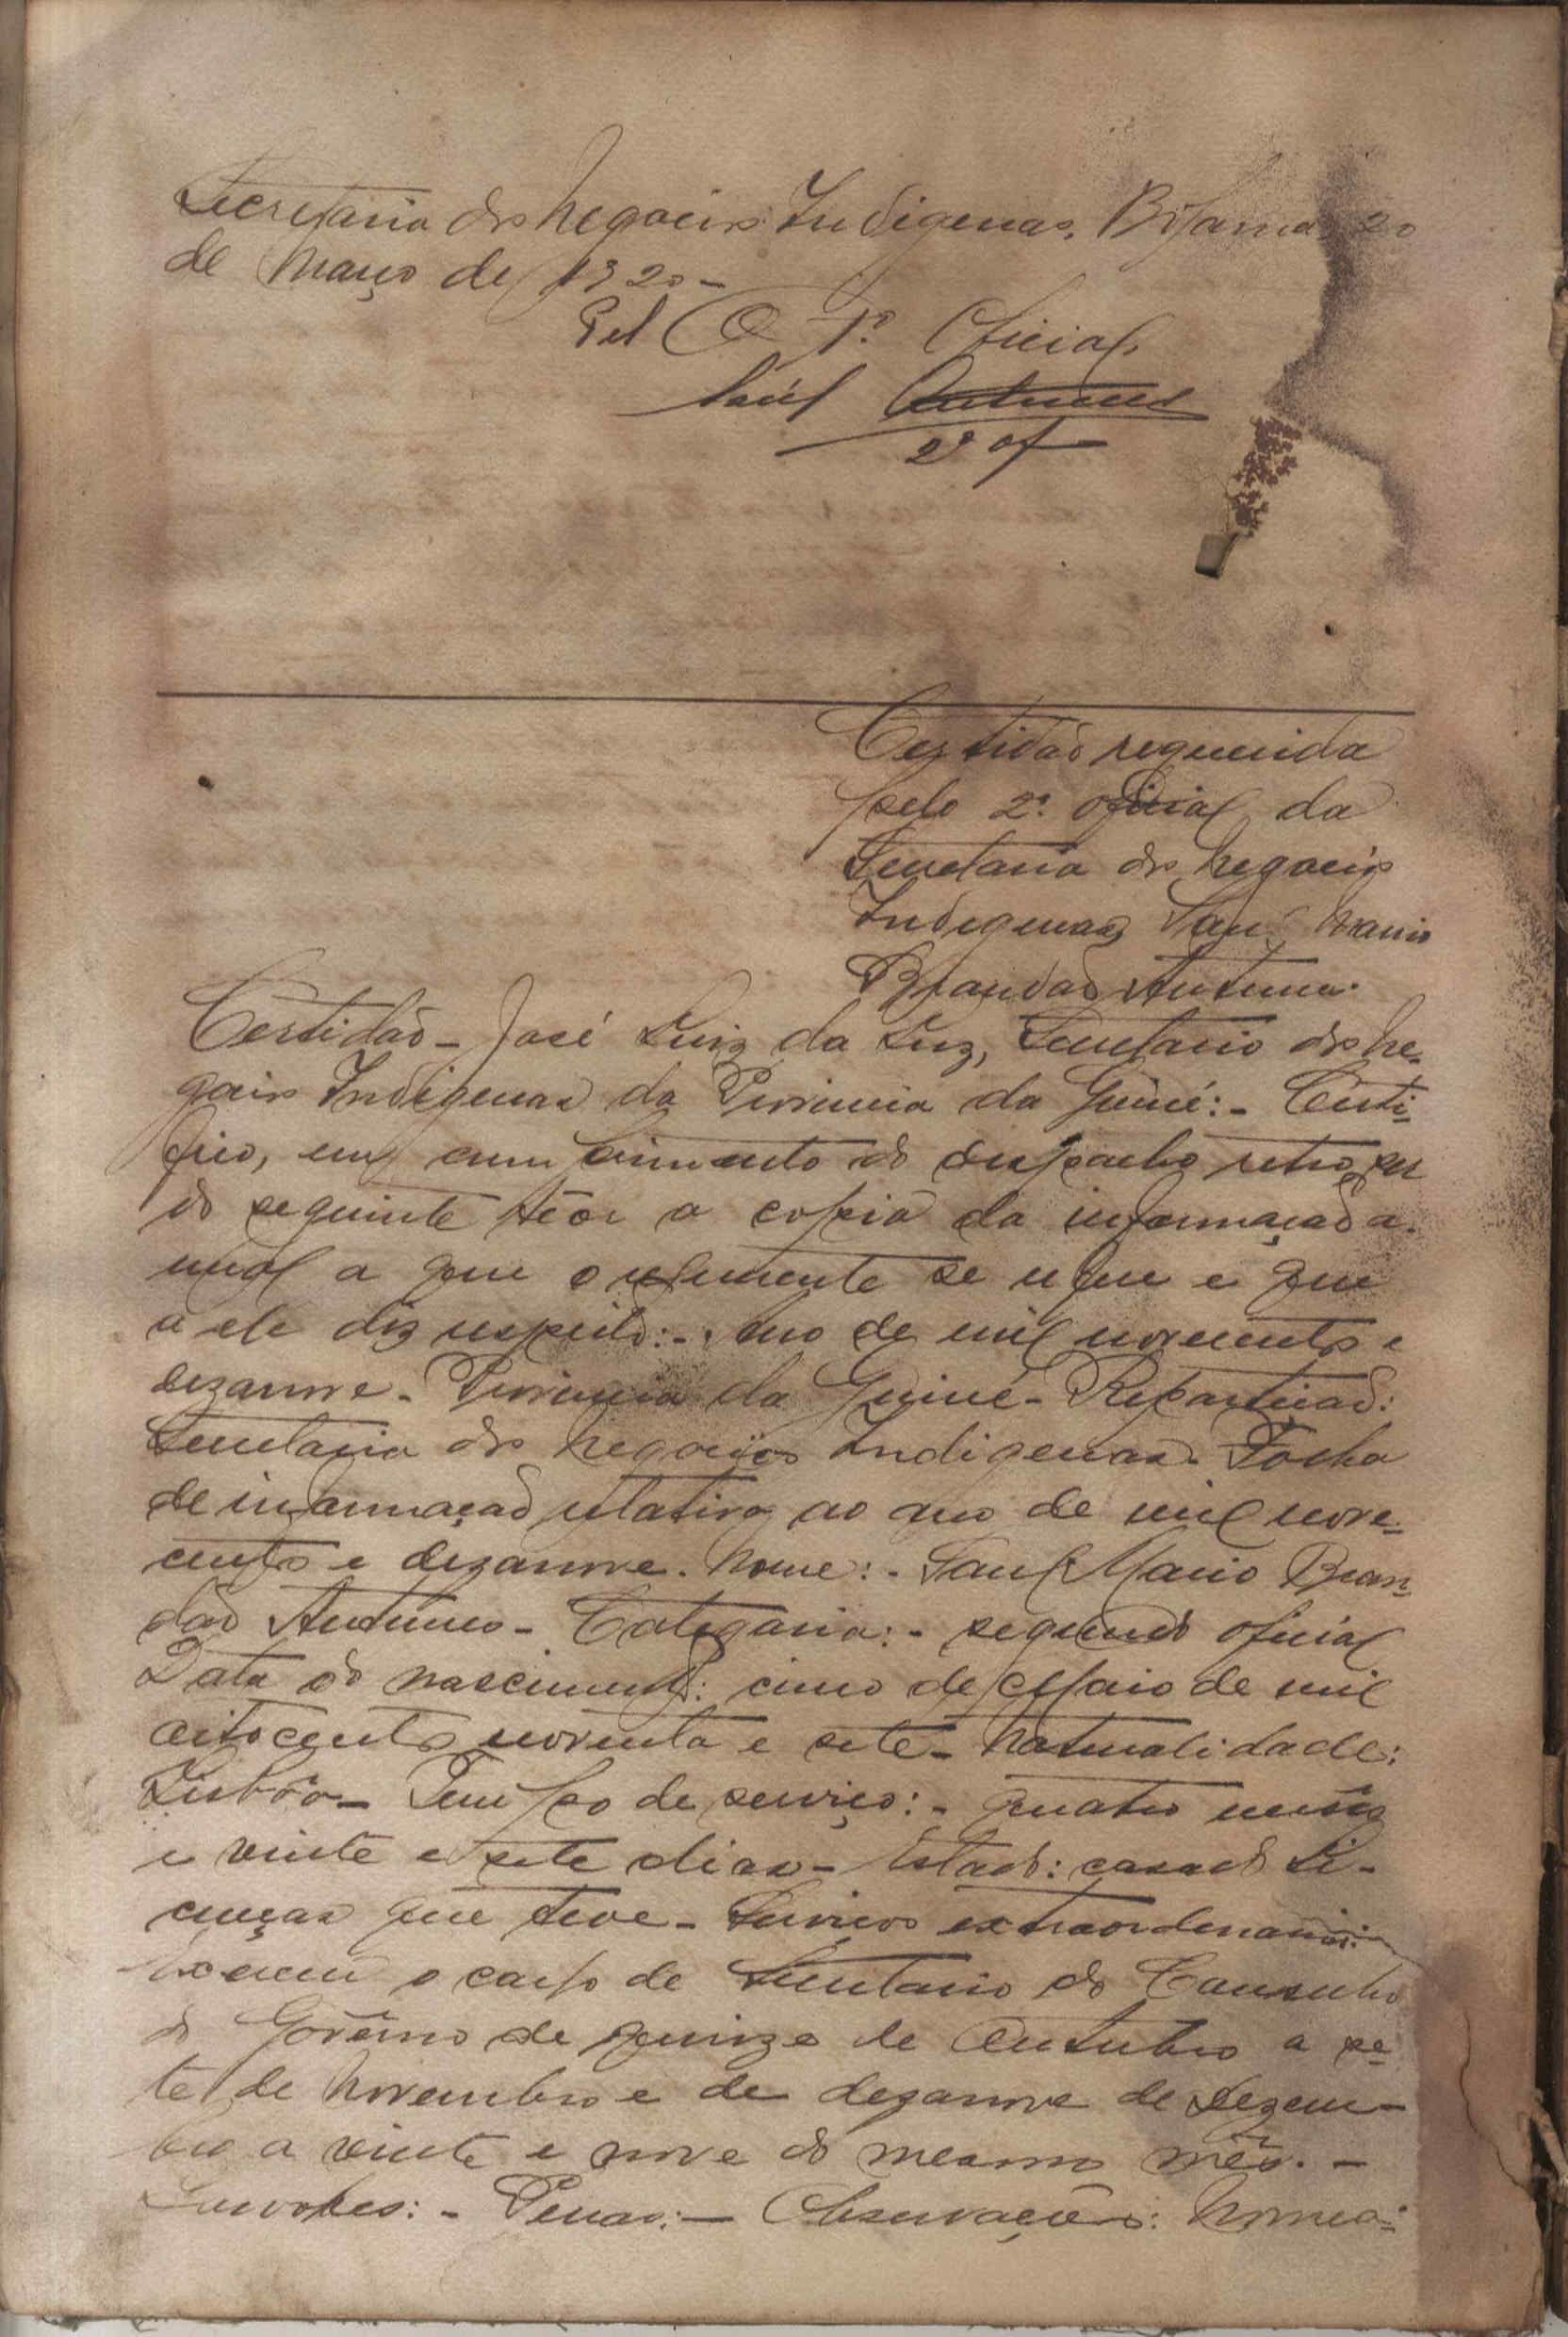 Secretaria dos Negocios Indigenas, Bolama, 20
de Março de 1920 -
Pel O 1º Oficial,
Saúl Antunes
2º of
Certidão requerida
pelo 2º oficial da
Secretaria dos Negocios
Indigenas, Saul Mario
Brandão Antunes.
Certidão - José Luiz da Luz, Secretario dos Ne-
gocios Indigenas da Provincia da Guiné: - Certi-
fico, em cumprimento do despacho retro, ser
do seguinte teôr a copia da informação a-
nual a que o requerente se refere e que
a ele diz respeito: - Ano de mil novecentos e
dezanove - Provincia da Guiné - Repartição:
Secretaria dos Negocios Indigenas - Folha
de informação relativa ao ano de mil nove-
centos e dezanove. Nome: - Saul Mario Bran-
dão Antunes - Categoria: - segundo oficial
Data do nascimento: cinco de Maio de mil
oitocentos noventa e sete - Naturalidade:
Lisbôa - Tempo de serviço: - quatro mêses
e vinte e sete dias - Estado: casado Li-
cenças que teve - Serviços extraordinarios:
Exerceu o cargo de Secretario do Conselho
do Govêrno de quinze de Outubro a se-
te de Novembro e de dezanove de Dezem-
bro a vinte e nove do mesmo mês. -
Louvores: - Penas: - Observações: Nomea-